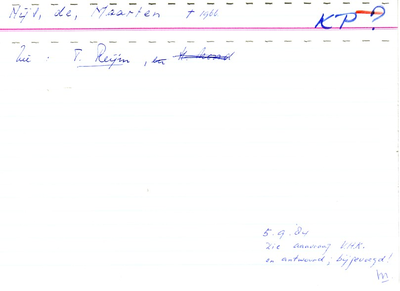 Nijs, de, Maarten † 1966
KP-?
Zie : T. Reijn, en H. hond
5.9.'84
Zie aanvraag V.H.K.
en antwoord; bijgevoegd!
m